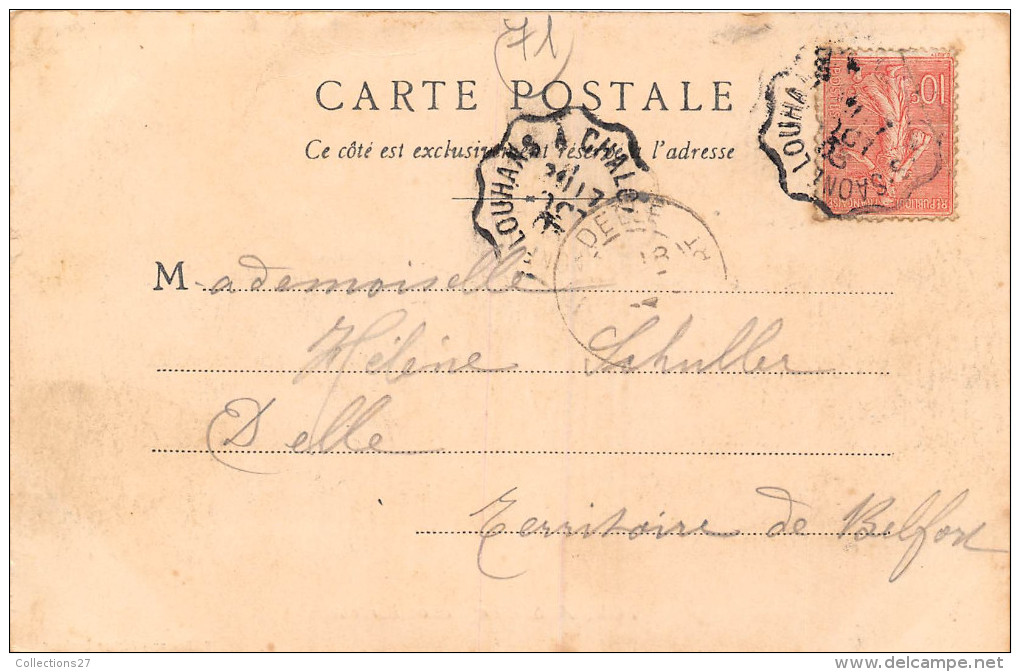 71
CARTE POSTALE
Ce côté est exclusivement réservé à l'adresse
LOUHANS A CHALO
LOUHANS
SAONE
10c
REPUBLIQUE FRANÇAISE
DELLE
Mademoiselle
Hélène Schuller
Delle
Territoire de Belfort
Collections27
delcampe.net